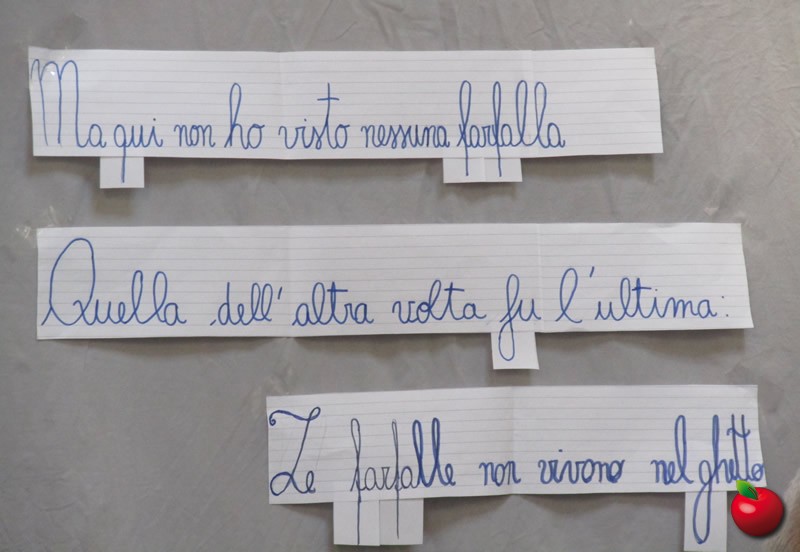 Ma qui non ho visto nessuna farfalla
Quella dell'altra volta fu l'ultima:
Le farfalle non vivono nel ghetto